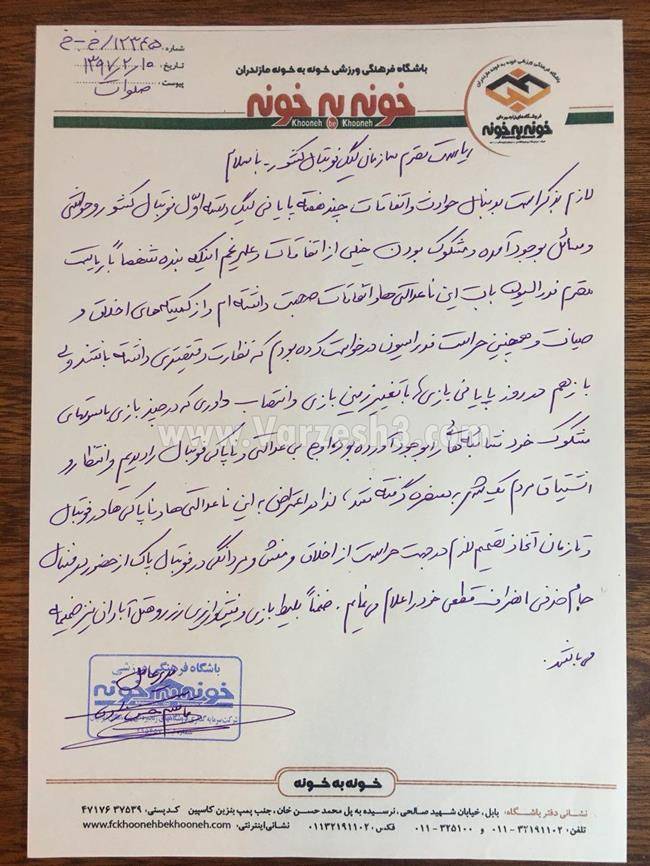 شماره: ۱۲۳۴۵/خ-خ
تاریخ: ۱۳۹۷/۲/۱۰
پیوست: صلوات
باشگاه فرهنگی ورزشی خونه به خونه مازندران
خونه به خونه
Khooneh be Khooneh
باشگاه فرهنگی ورزشی خونه به خونه مازندران
فروشگاه‌های زنجیره‌ای
خونه به خونه
ریاست محترم سازمان لیگ فوتبال کشور - با سلام
لازم بذکر است بدنبال حوادث و اتفاقات چند هفته پایانی لیگ دسته اول فوتبال کشور و حواشی
و مسائل بوجود آمده و مشکوک بودن خیلی از اتفاقات و علیرغم اینکه بنده شخصاً با ریاست
محترم فدراسیون بابت این ناعدالتی‌ها و اتفاقات صحبت داشته‌ام و از کمیته‌های اخلاق و
صیانت و همچنین حراست فدراسیون درخواست کرده بودم که نظارت دقیقتری داشته باشند ولی
باز هم در روز پایانی بازی‌ها با تغییر زمین بازی و انتصاب داوری که در چند بازی با سوتهای
مشکوک خود را بوجود آورده بود اوج بی عدالتی و ناپاکی فوتبال را دیدیم و انتظار و
اشتیاق مردم یک شهر به سخره گرفته شد، لذا در اعتراض به این ناعدالتی‌ها و ناپاکی‌ها در فوتبال
و تا زمان اتخاذ تصمیم لازم در جهت حراست از اخلاق و منش و مردانگی در فوتبال پاک از حضور در فینال
جام حذفی انصراف قطعی خود را اعلام می‌نمایم. ضمناً بلیط بازی و رزرو هتل آبادان نیز ضمیمه
می‌باشد.
مدیرعامل
باشگاه فرهنگی ورزشی
خونه به خونه
www.Varzesh3.com
خونه به خونه
نشانی دفتر باشگاه: بابل، خیابان شهید صالحی، نرسیده به پل محمد حسن خان، جنب پمپ بنزین کاسپین کدپستی: ۳۷۵۳۹ ۴۷۱۷۶
تلفن: ۳۲۱۹۱۱۰۲-۰۱۱ و ۳۲۵۱۰۰-۰۱۱ فکس: ۰۱۱۳۲۱۹۱۱۰۲ نشانی اینترنتی: www.fckhoonehbekhooneh.com